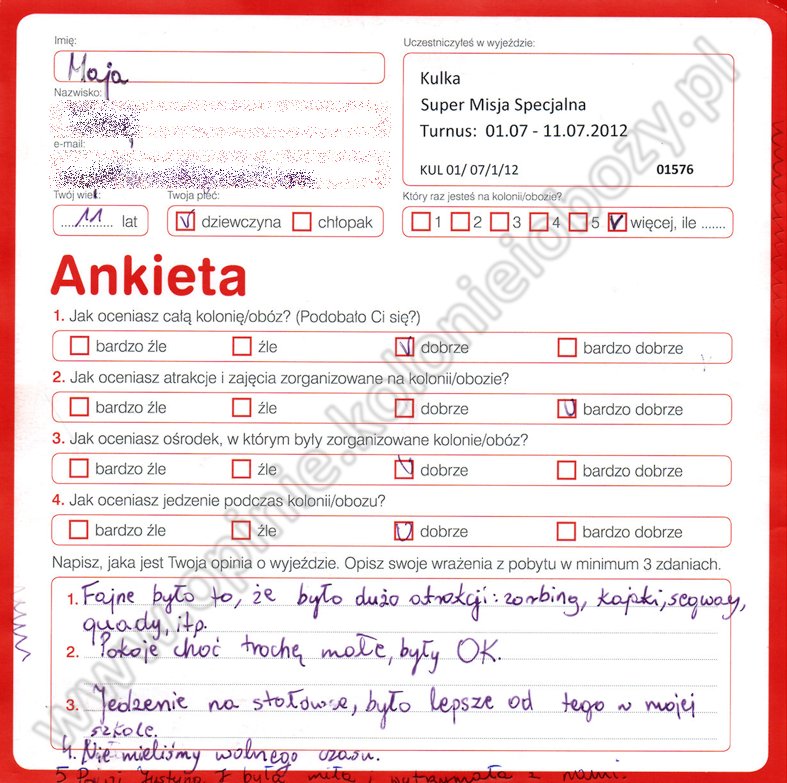 Imię:
Maja
Nazwisko:
e-mail:
Twój wiek:
11 lat
Twoja płeć:
dziewczyna chłopak
Uczestniczyłeś w wyjeździe:
Kulka
Super Misja Specjalna
Turnus: 01.07 - 11.07.2012
KUL 01/ 07/1/12 01576
Który raz jesteś na kolonii/obozie?
1 2 3 4 5 więcej, ile .......
Ankieta
1. Jak oceniasz całą kolonię/obóz? (Podobało Ci się?)
bardzo źle źle dobrze bardzo dobrze
2. Jak oceniasz atrakcje i zajęcia zorganizowane na kolonii/obozie?
bardzo źle źle dobrze bardzo dobrze
3. Jak oceniasz ośrodek, w którym były zorganizowane kolonie/obóz?
bardzo źle źle dobrze bardzo dobrze
4. Jak oceniasz jedzenie podczas kolonii/obozu?
bardzo źle źle dobrze bardzo dobrze
Napisz, jaka jest Twoja opinia o wyjeździe. Opisz swoje wrażenia z pobytu w minimum 3 zdaniach.
1. Fajne było to, że było dużo atrakcji: zorbing, kajaki, segway,
quady, itp.
2. Pokoje choć trochę małe, były OK.
3. Jedzenie na stołówce, było lepsze od tego w mojej
szkole.
4. Nie mieliśmy wolnego czasu.
5. Pani Justyna F była miła i wytrzymała z nami.
www.opinie.kolonieiobozy.pl